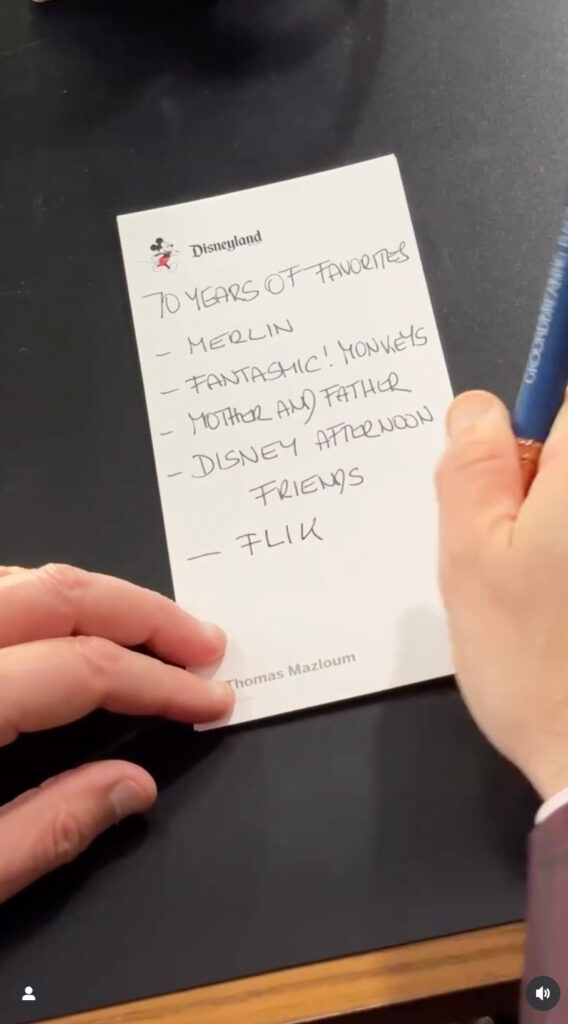 Disneyland
70 YEARS OF FAVORITES
- MERLIN
- FANTASMIC! MONKEYS
- MOTHER AND FATHER
- DISNEY AFTERNOON
FRIENDS
- FLIK
Thomas Mazloum